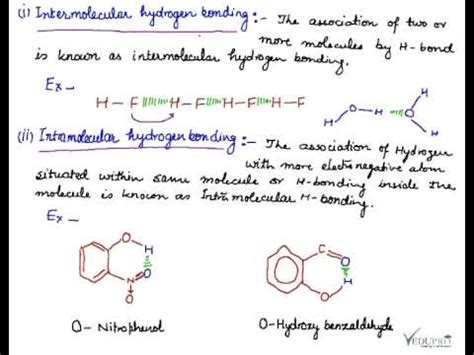 (i) Intermolecular hydrogen bonding :- The association of two or
more molecules by H-bond
is known as intermolecular hydrogen bonding.
Ex -
H-F H-F H-F H-F
O H O H H
(ii) Intramolecular hydrogen bonding :- The association of Hydrogen
with more electronegative atom
situated within same molecule or H-bonding inside the
molecule is known as Intramolecular H-bonding.
Ex -
O H O N O
C O H O
O- Nitrophenol
O-Hydroxy benzaldehyde
EDUPRO